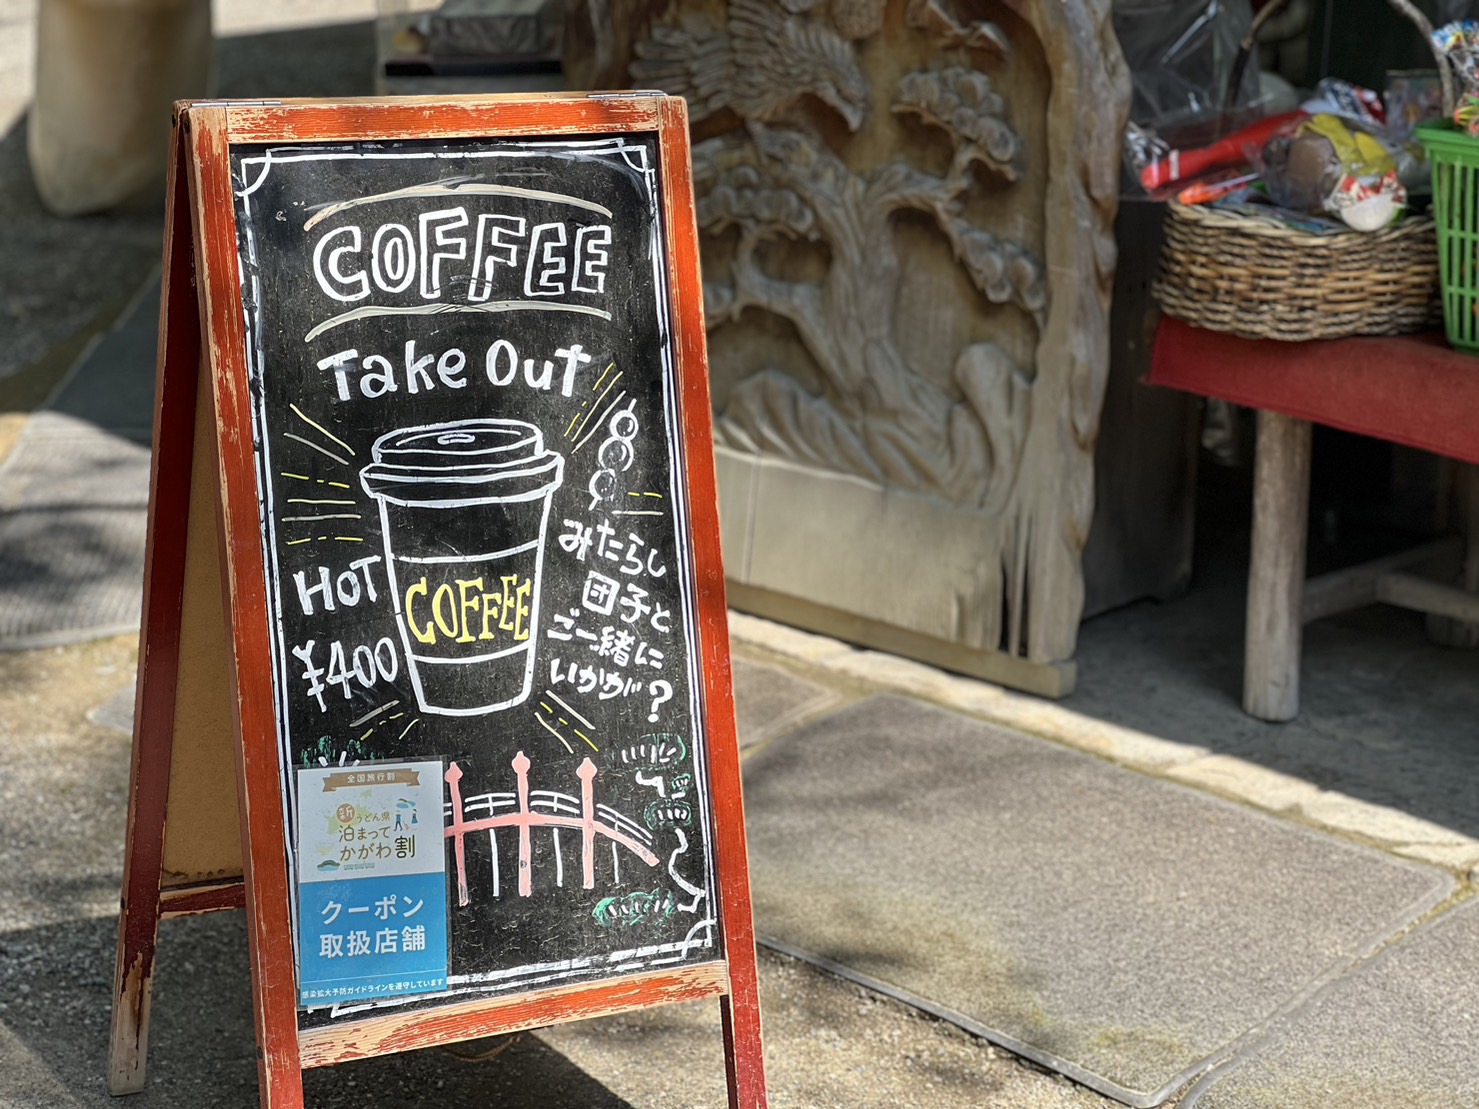 COFFEE
Take Out
COFFEE
HOT
¥400
みたらし
団子と
ご一緒に
いかが?
全国旅行割
新うどん県
泊まって
かがわ割
クーポン
取扱店舗
感染拡大予防ガイドラインを遵守しています